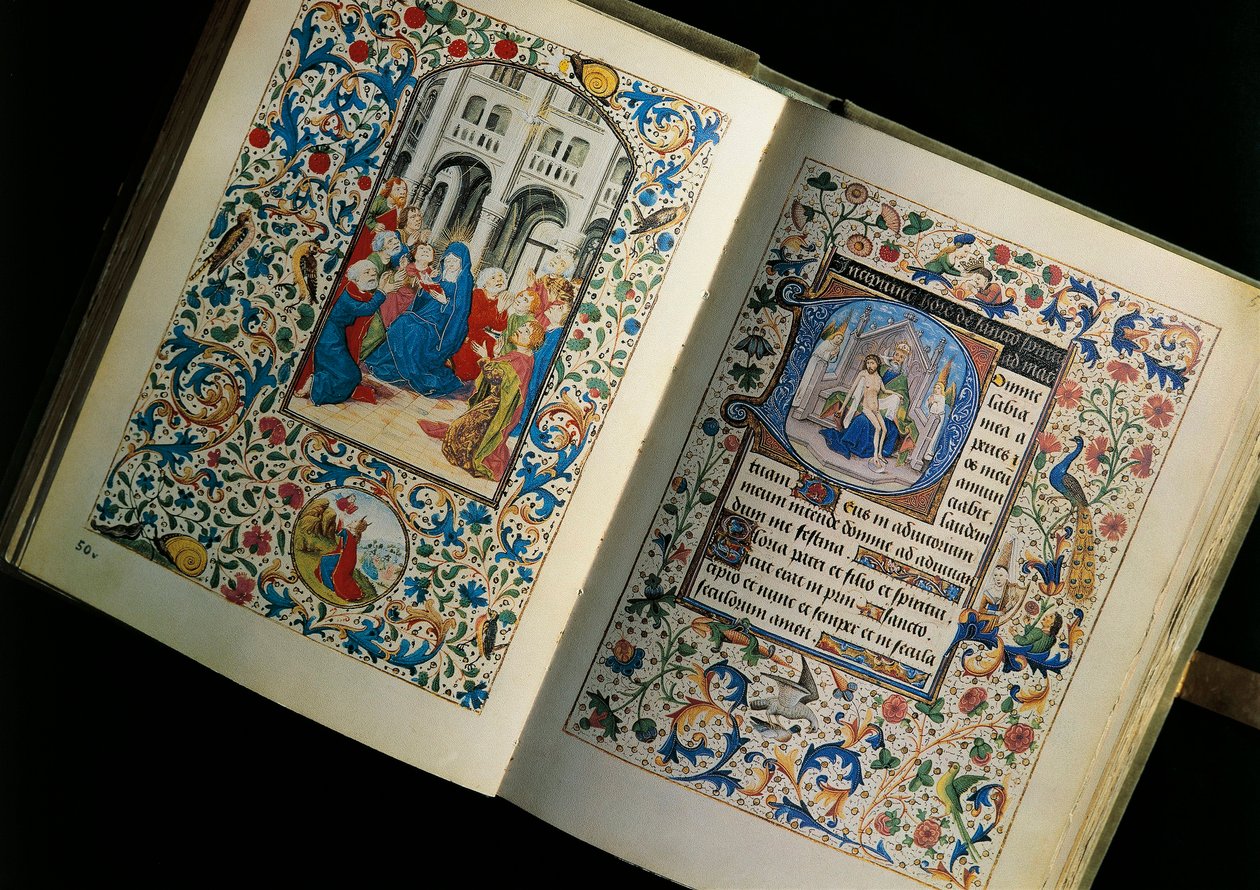 50v
Incipiunt hore de sancto spiritu
ad mat
Domine
labia
mea a
peries
os meū
annun
ciabit
laudem
tuam Deus in adiutorium
meum intende domine ad adiuuan
dum me festina
Gloria patri et filio et spiritui
Sicut erat in prin sancto
cipio et nunc et semper et in secula
seculorum amen